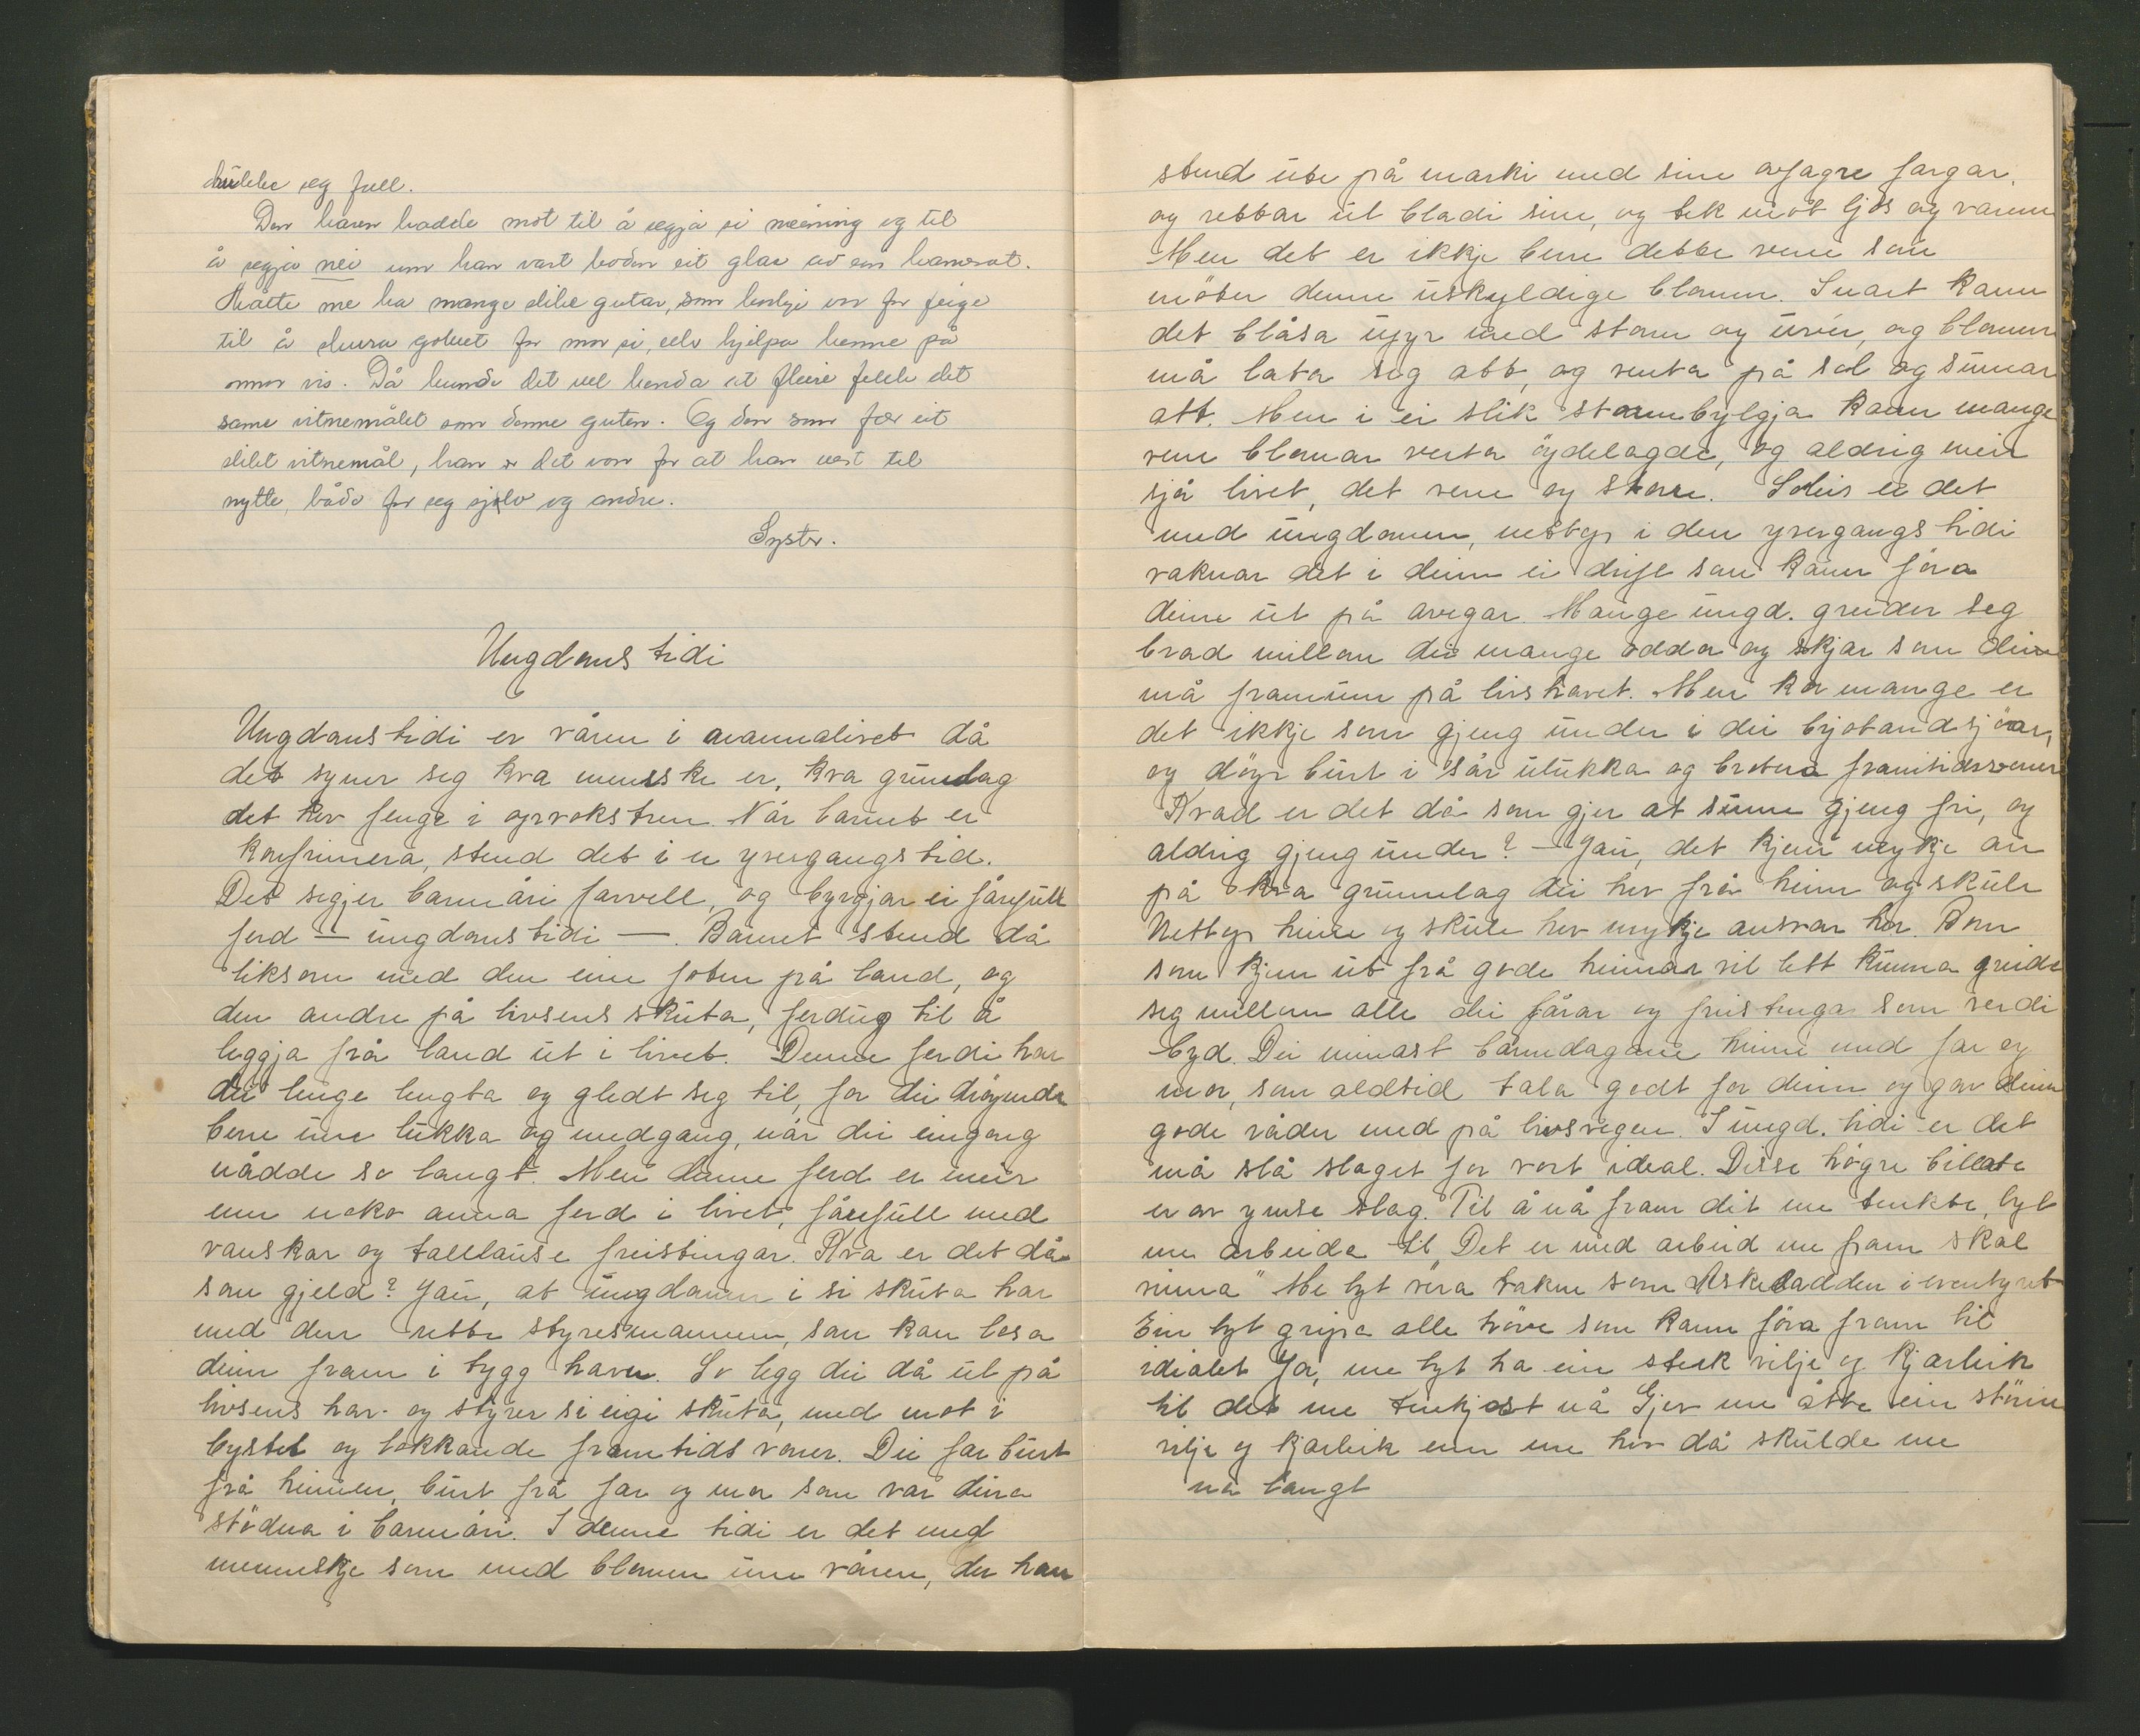 drikke seg full.
Den karen hadde mot til å segja si meining og til
å segja nei um han vart boden eit glas av ein kamerat.
Måtte me ha mange slike gutar, som korkje var for feige
til å skura golvet for mor si, eller hjelpa henne på
annor vis. Då kunde det vel henda at fleire fekk det
same vitnemålet som denne guten. Og den som fær eit
slikt vitnemål, han er det von for at han vert til
nytte, både for seg sjølv og andre.
Syster.
Ungdomstidi
Ungdomstidi er våren i mannalivet då
det syner seg kva menneske er, kva grunnlag
det hev fenge i uprvoksteren. Når barnet er
konfirmera, stend det i ei yvergangstid.
Det segjer barneåri farvell, og byrgjar ei fårefull
ferd – ungdomstidi –. Barnet stend då
liksom med den eine foten på land, og
den andre på livsens skuta, ferdug til å
leggja frå land ut i livet. Denne ferdi har
dei lenge lengta og gledt seg til, for dei drøymde
berre um lukka og medgang, når dei eingong
nådde so langt. Men denne ferd er meir
enn noko anna ferd i livet, fårefull med
vanskar og tallause freistingar. Kva er det då
som gjeld? Jau, at ungdomen i si skuta har
med den rette styresmannen, som kan losa
deim fram i trygg havn. So legg dei då ut på
livsens hav og styrer si eigi skuta, med mot i
brystet og lokkande framtidsvoner. Dei far burt
frå heimen, burt frå far og mor som var deira
stødna i barneåri. I denne tidi er det med
menneskje som med blomen um våren, der han
stend ute på marki med sine ovfagre fargar,
og rettar ut bladi sine, og tek imot ljos og varme
Men det er ikkje berre dette vene som
møter denne uskyldige blomen. Snart kann
det blåsa upp med storm og uvêr, og blomen
må lata seg att, og venta på sol og sumar
att. Men i ei slik stormbylgja kann mange
vene blomar verta øydelagde, og aldrig meir
sjå livet, det vene og store. Soleis er det
med ungdomen, nettup i den yvergangstidi
vaknar det i deim ei drift som kann føra
deim ut på avegar. Mange ungd. greider seg
bra millom dei mange oddar og skjær som deim
må framum på livshavet. Men kor mange er
det ikkje som gjeng under i dei brjotandsjøar,
og døyr burt i sår ulukka og brotna framtidsvoner
Kvad er det då som gjer at sume gjeng fri, og
aldrig gjeng under? – Jau, det kjem mykje an
på kva grunnlag dei hev frå heim og skule
Nettup heim og skule hev mykje ansvar her. Born
som kjem ut frå gode heimar vil lett kunna greide
seg millom alle dei fårar og freistingar som verdi
byd. Dei minnast barndagane heime med far og
mor, som aldtid tala godt for deim og gav deim
gode råder med på livsvegen. I ungd. tidi er det
må slå slaget for vort ideal. Disse høgre bilæte
er av ymse slag. Til å nå fram dit me tenkte, lyt
me arbeide til „Det er med arbeid me fram skal
vinna" Me lyt vera vakne som Askeladden i eventyret
Ein lyt gripa alle høve som kann føra fram til
idialet Ja, me lyt ha ein sterk vilje og kjærleik
til det me tenkjest nå Gjev me åtte ein større
vilje og kjærleik enn me hev då skulde me
nå langt